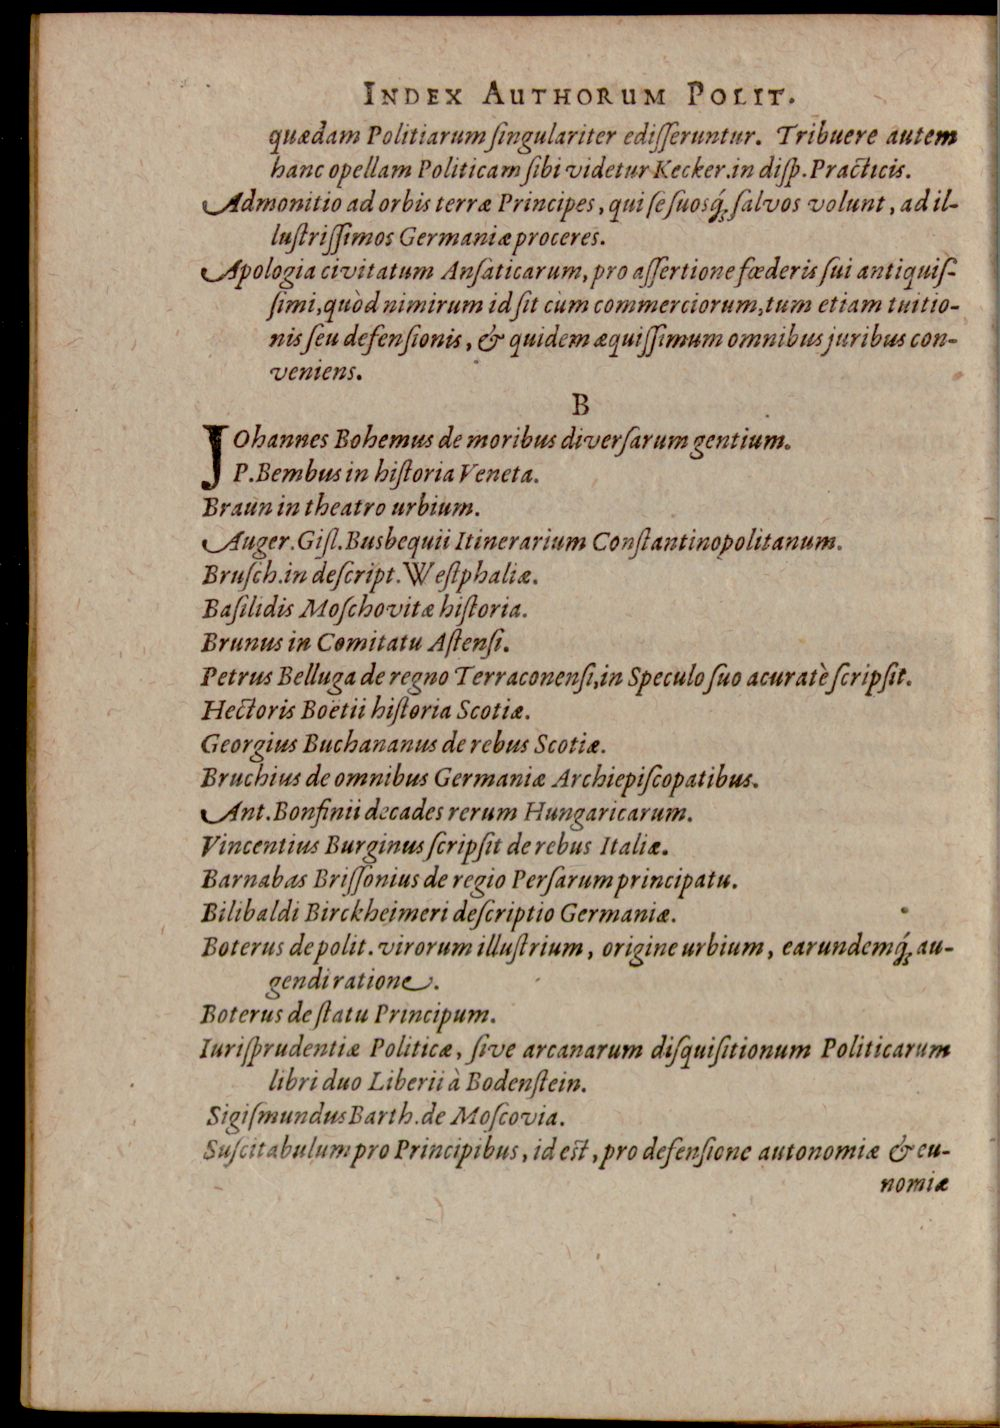 INDEX AUTHORUM POLIT.
quædam Politiarum ſingulariter ediſſeruntur. Tribuere autem
hanc opellam Politicam ſibi videtur Kecker. in diſp. Practicis.
Admonitio ad orbis terræ Principes, qui ſe ſuosq́; ſalvos volunt, ad il-
luſtriſſimos Germaniæ proceres.
Apologia civitatum Anſaticarum, pro aſſertione fœderis ſui antiquiſ-
ſimi, quòd nimirum id ſit cùm commerciorum, tum etiam tuitio-
nis ſeu defenſionis, & quidem æquiſſimum omnibus juribus con-
veniens.
B
JOhannes Bohemus de moribus diverſarum gentium.
P. Bembus in hiſtoria Veneta.
Braun in theatro urbium.
Auger. Giſl. Busbequii Itinerarium Conſtantinopolitanum.
Bruſch. in deſcript. Weſtphaliæ.
Baſilidis Moſchovitæ hiſtoria.
Brunus in Comitatu Aſtenſi.
Petrus Belluga de regno Terraconenſi, in Speculo ſuo acuratè ſcripſit.
Hectoris Boëtii hiſtoria Scotiæ.
Georgius Buchananus de rebus Scotiæ.
Bruchius de omnibus Germaniæ Archiepiſcopatibus.
Ant. Bonfinii decades rerum Hungaricarum.
Vincentius Burginus ſcripſit de rebus Italiæ.
Barnabas Briſſonius de regio Perſarum principatu.
Bilibaldi Birckheimeri deſcriptio Germaniæ.
Boterus de polit. virorum illuſtrium, origine urbium, earundemq́; au-
gendi ratione.
Boterus de ſtatu Principum.
Iuriſprudentiæ Politicæ, ſive arcanarum diſquiſitionum Politicarum
libri duo Liberii à Bodenſtein.
Sigiſmundus Barth. de Moſcovia.
Suſcitabulum pro Principibus, id eſt, pro defenſione autonomiæ & eu-
nomiæ